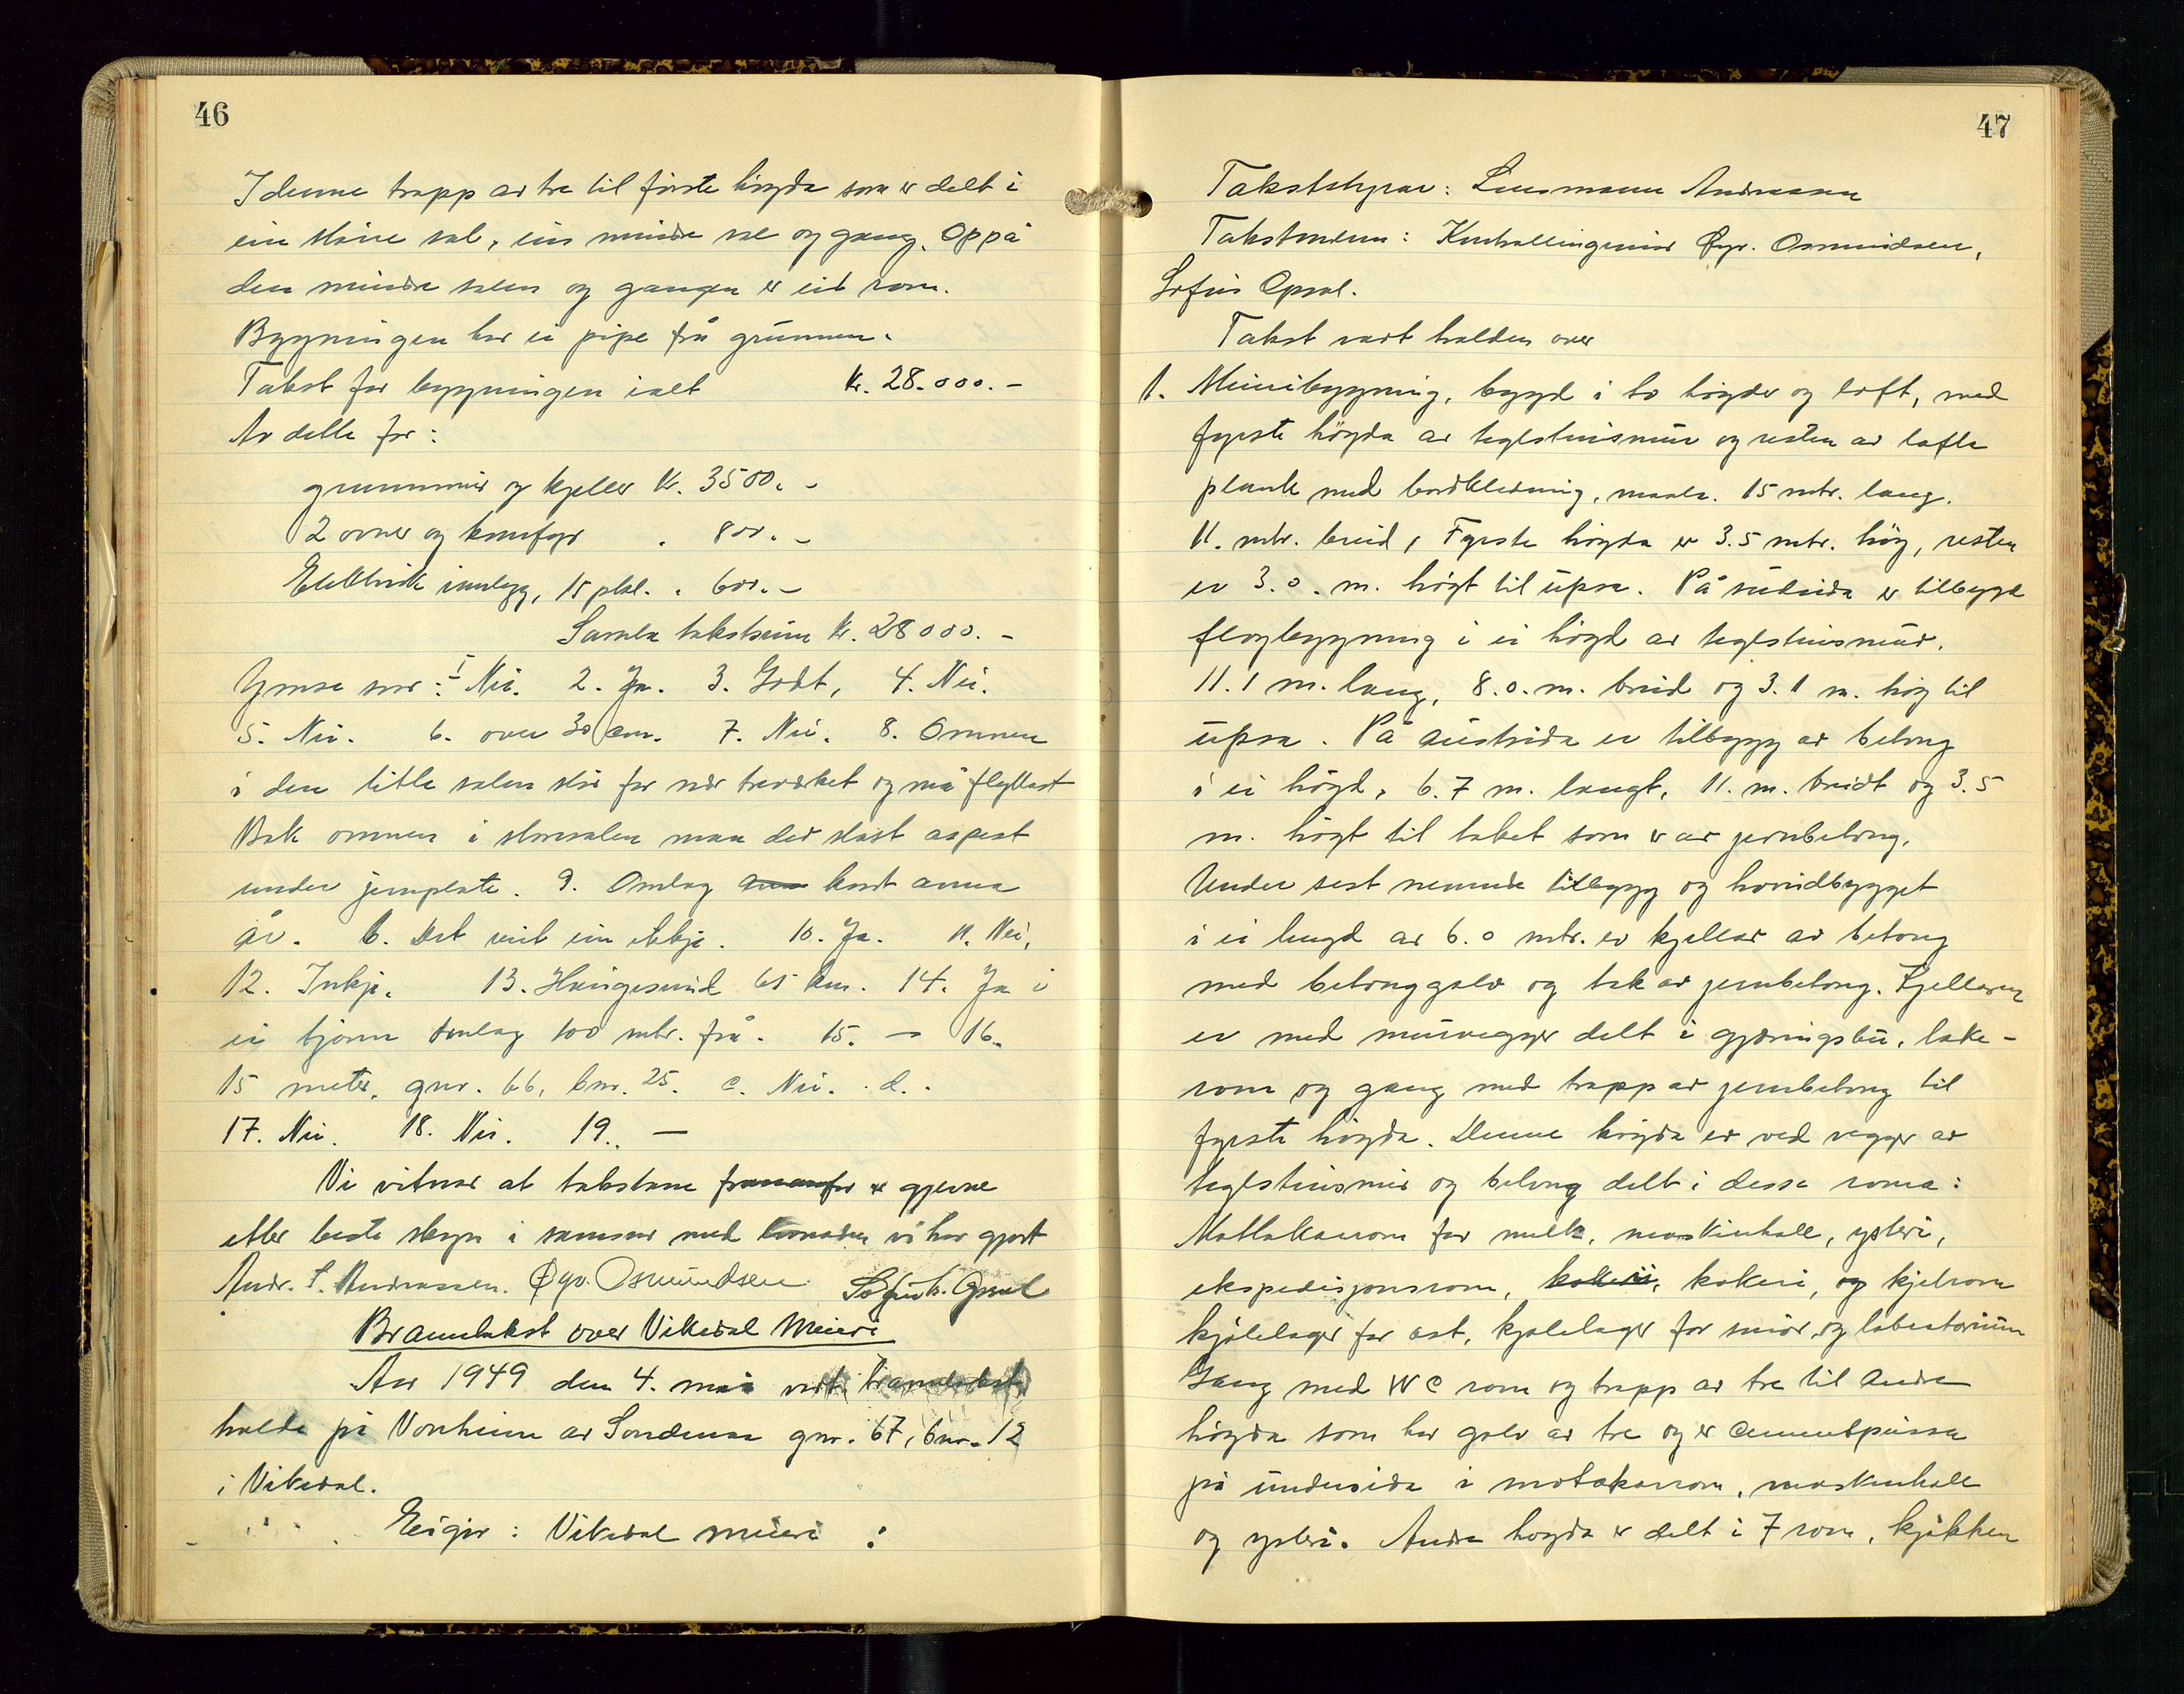 46
I denne trapp av tre til første høgda som er delt i
ein større sal, ein mindre sal og gang. Oppå
den mindre salen og gangen er eit rom.
Bygningen har ei pipe frå grunnen.
Takst for bygningen ialt Kr. 28.000.-
Av dette for:
grunnmur og kjeller Kr. 3500.-
2 ovner og komfyr . 800.-
Elektrisk innlegg, 15 pkt. . 600.-
Samla takstsum Kr. 28000.-
Ymse svar: 1 Nei. 2. Ja. 3. Godt, 4. Nei.
5. Nei. 6. over 30 cm. 7. Nei. 8. Omnen
i den litle salen står for nær treverket og må flyttast
Bak omnen i storsalen maa der slåst aspest
under jernplate. 9. Omlag kvart anna
år. b. Det veit ein ikkje. 10. Ja. 11. Nei,
12. Inkje. 13. Haugesund 65 km. 14. Ja i
ei tjønn omlag 100 mtr. frå. 15. — 16.
15 meter, gnr. 66, bnr. 25. c. Nei. d.
17. Nei. 18. Nei. 19. —
Vi vitnar at takstane framanfor er gjevne
etter beste skyn i samsvar med vi har gjort
Andr. S. Andreassen. Øyv. Osmundsen Sofus Opsal
Branntakst over Vikedal Meieri
Aar 1949 den 4. mai vart branntakst
halde på Vonheim av Søndenaa gnr. 67, bnr. 12
i Vikedal.
Eigar: Vikedal meieri :
47
Takststyrar: Lensmann Andreassen
Takstmenn: Kontrollingeniør Øyv. Osmundsen,
Sofus Opsal.
Takst vart halden over
1. Meieribygning, bygd i to høgder og loft, med
fyrste høgda av teglsteinsmur og resten av lafta
plank med bordkledning, maala. 15 mtr. lang.
11. mtr. breid, Fyrste høgda er 3.5 mtr. høg, resten
er 3.0. m. høgt til upsa. På sudsida er tilbygd
fløybygning i ei høgd av teglsteinsmur.
11.1 m. lang, 8.0. m. breid og 3.1 m. høg til
upsa. På austsida er tilbygg av betong
i ei høgd, 6.7 m. langt, 11. m. breidt og 3.5
m. høgt til taket som er av jernbetong.
Under sist nemnde tilbygg og hovudbygget
i ei lengd av 6.0 mtr. er kjellar av betong
med betonggolv og tak av jernbetong. Kjellaren
er med murvegger delt i gjæringsbu, lake-
rom og gang med trapp av jernbetong til
fyrste høgda. Denne høgda er ved vegger av
teglsteinsmur og betong delt i desse roma:
Mottakarrom for melk, maskinhall, ysteri,
ekspedisjonsrom, kokeri, kokeri, og kjelrom
kjølelager for ost, kjølelager for smør, og laboratorium
Gang med WC rom og trapp av tre til andre
høgda som har golv av tre og er cementpussa
på undersida i motakarrom, maskinhall
og ysteri. Andre høgda er delt i 7 rom, kjøkken